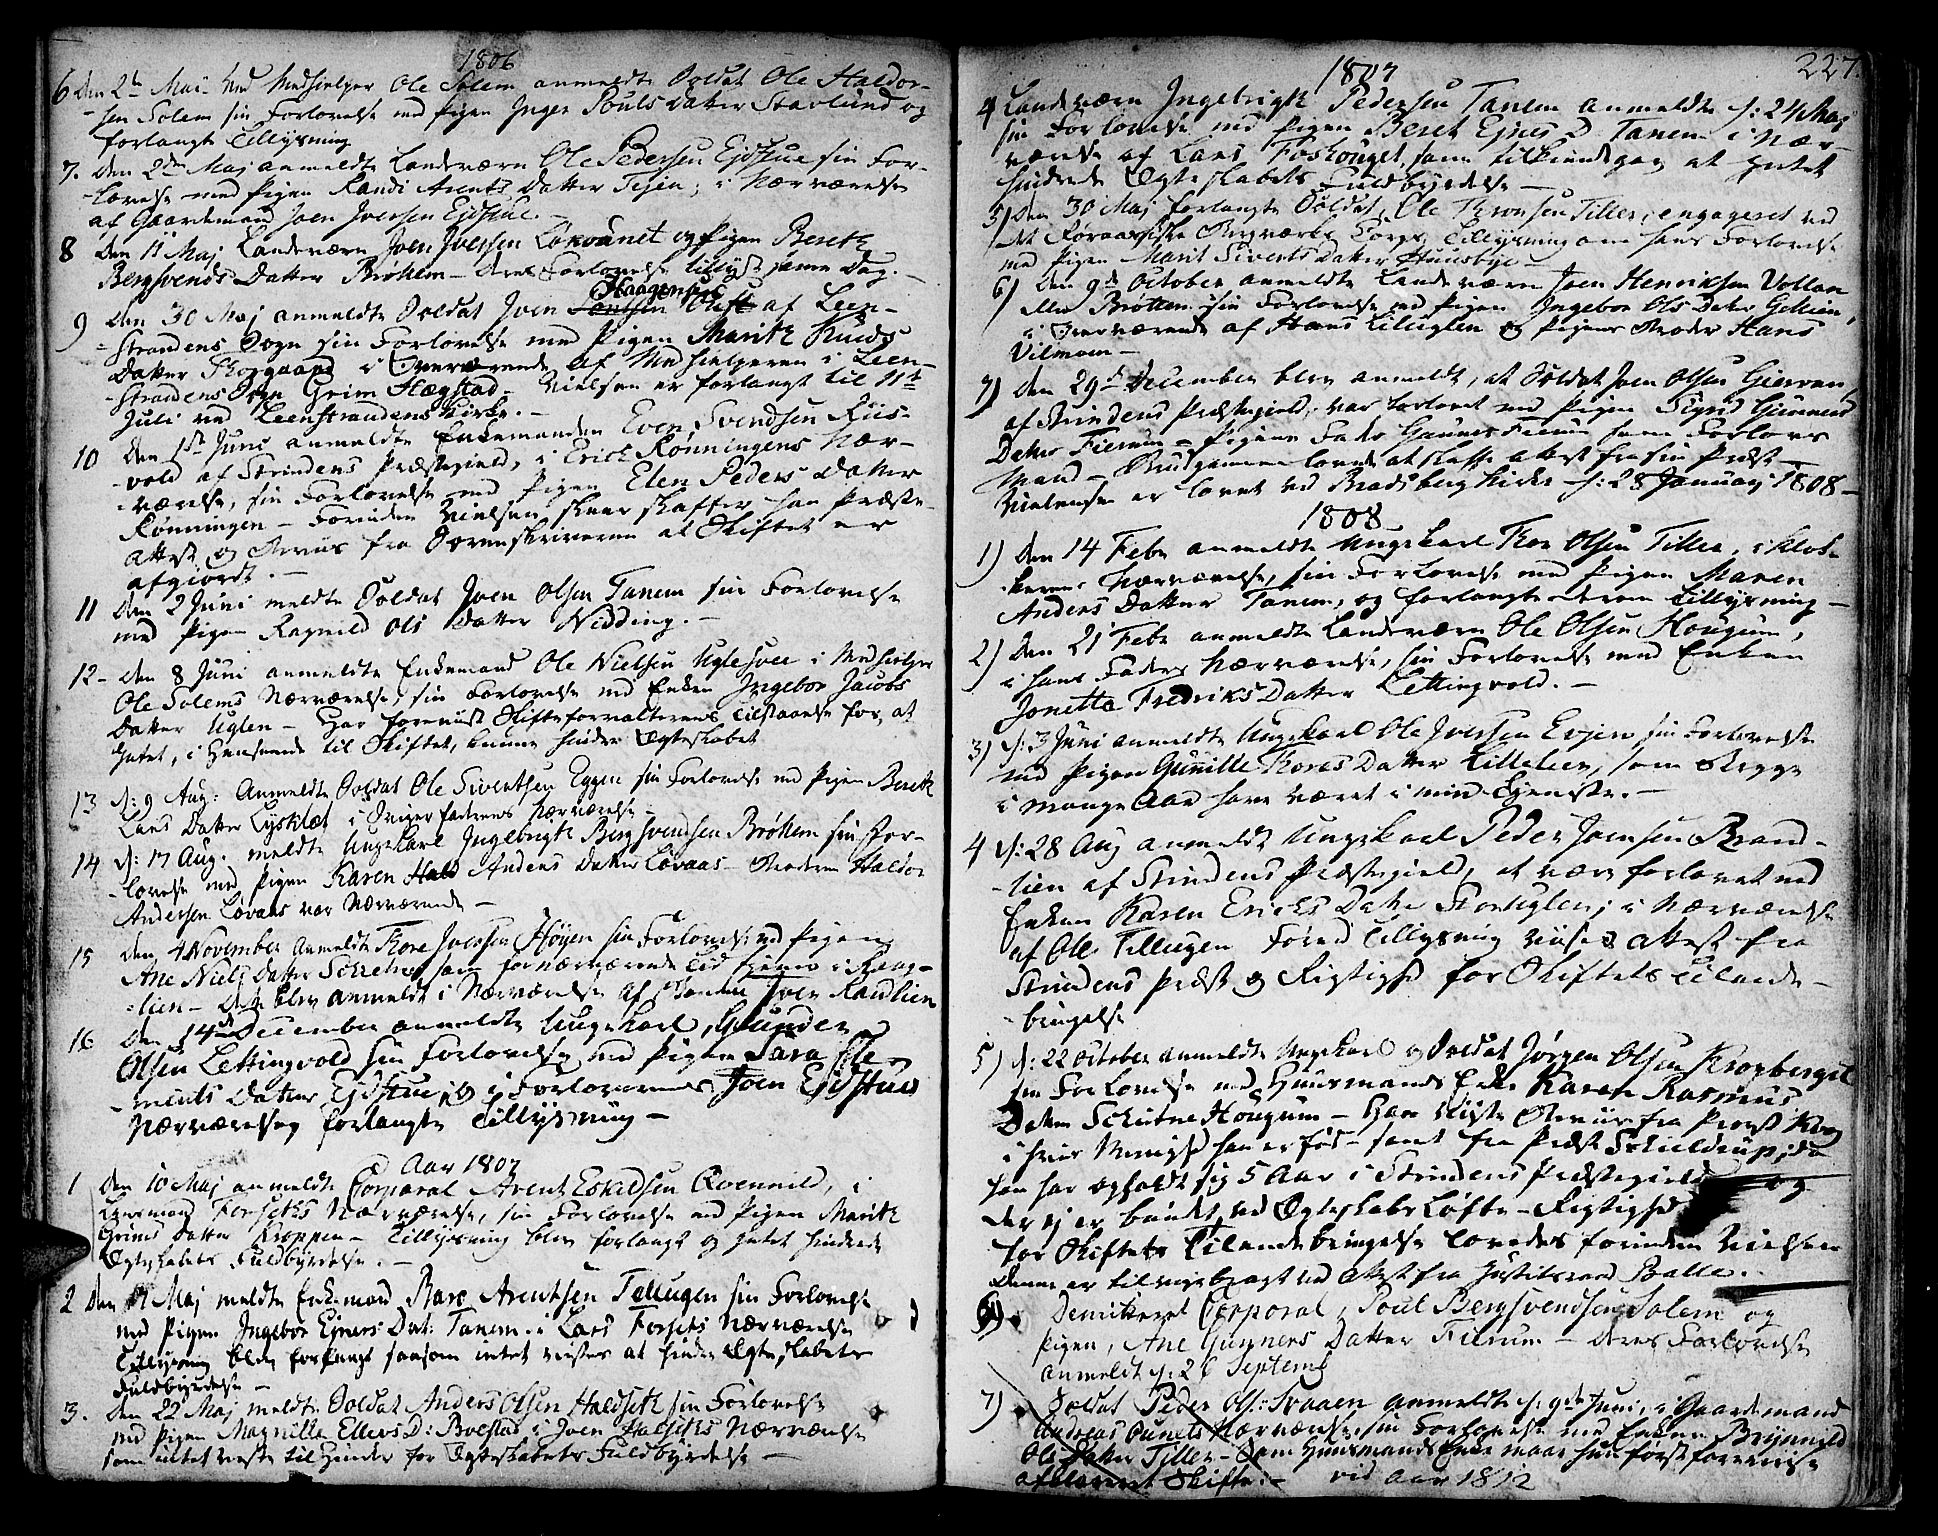 1806
6 Den 2de Maj ved Medhielper Ole Solem anmeldte Soldat Ole Haldor-
sen Solem sin Forlovelse med Pigen Inger Pouls Datter Starlund og
forlangte Tillysning
7. Den 2den Maj anmeldte Landeværn Ole Pedersen Ejdstue sin For-
lovelse med Pigen Randi Arents Datter Tesen; i Nærværelse
af Gaardmand Joen Iversen Ejdstue.
8 Den 11 Maj Landeværn Joen Iversen Løkvunet og Pigen Bereth
Bergsvends Datter Brøhem – deres Forlovelse tillyst samme Dag.
Haagensen
9 Den 30 Maj anmeldte Soldat Joen Jontsen Olst af Leen-
strandens Sogn sin Forlovelse med Pigen Marith Knuds
Datter Skogaard i Overværende af Medhielperen i Leen-
strandens Sogn Grim Hægstad – Vielsen er forlangt til 11te
Juli ved Leenstrandens Kirke. –
10 Den 1ste Juni anmeldte Enkemanden Even Svendsen Riis-
vold af Strindens Præstegield, i Erich Rønningens Nær-
værelse, sin Forlovelse med Pigen Elen Peders Datter
Rønningen – Forinden Vielsen skeer skaffer han Præste-
Attest og Beviis fra Sorenskriveren at Skiftet er
afgiordt. –
11 Den 2 Juni meldte Soldat Joen Olsen Tanem sin Forlovelse
med Pigen Ragnild Ols Datter Nidding. –
12 – Den 8 Juni anmeldte Enkemand Ole Nielsen Uglesvee i Medhielper
Ole Solems Nærværelse, sin Forlovelse med Enken Ingebor Jacobs
Datter Uglen – Har foreviist Skifteforvalterens Tilstaaelse for, at
Intet, i Henseende til Skiftet, kunne hindre Ægteskabet
13 d: 9 Aug: Anmeldte Soldat Ole Sivertsen Eggen sin Forlovelse med Pigen Bereth
Lars Datter Lysklæt i Svigerfaderens Nærværelse –
14 d: 17 Aug. meldte Ungekarl Ingebrigt Bergsvendsen Brøhem sin For-
lovelse med Pigen Karen Hald Anders Datter Løvaas – Broderen Haldor
Andersen Løvaas var Nærværende –
15 den 4 November Anmeldte Tore Iversen Høyen sin Forlovelse med Pigen
Ane Niels Datter som for nærværende Tid tiener i Rang-
lien – Det blev anmeldt i Nærværelse af Iver Randlien
16 Den 14de December anmeldte Ungekarl, Gunder
Olsen Lettingvold sin Forlovelse med Pigen Sara Cle-
ments Datter Ejdstue, og i Forloverens, Joen Ejdstues
Nærværelse forlangte Tillysning –
Aar 1807
1 Den 10 Maj anmeldte Corporal Arent Eskildsen Qvennild, i
Lensmand Forseths Nærværelse, sin Forlovelse med Pigen Marith
Grims Datter Kroppen – Tillysning blev forlangt og Intet hindrede
Ægteskabets Fuldbyrdelse. –
2 Den 17 Maj meldte Enkemand Baro Arentsen Tellugen sin Forlovelse
med Pigen Ingebor Ejners Dat: Tanem i Lars Forsets Nærværelse
Tillysning blev forlangt saasom intet vistes at hindre Ægteskabets
Fuldbyrdelse –
3. Den 22 Maj meldte Soldat Anders Olsen Haldseth sin Forlovelse
med Pigen Magnilla Ellevs D: Bolstad i Joen Halseths Nærværelse
som intet viste til Hinder for Ægteskabets Fuldbyrdelse –
227.
1807
4 Landeværn Ingebrigt Pedersen Tanem anmeldte d: 24 Maj
sin Forlovelse med Pigen Beret Ejnes D. Tanem i Nær-
værelse af Lars Foshouget, som tilkiendegav at Intet
hindrede Ægteskabets Fuldbyrdelse –
5) Den 30 Maj forlangte Soldat, Ole Thronsen Tiller, engageret ved
det Røraasiske Bergværks Corps, Tillysning om hans Forlovelse
med Pigen Marit Siverts Datter Huusbye –
6) Den 9de October anmeldte Landeværn Joen Henriksen Vollan
eller Brøtten, sin Forlovelse med Pigen Ingebor Ols Datter
i Overværende af Hans Lilluglen og Pigens Broder Hans
Vilmoen –
7) Den 29de December blev anmeldt, at Soldat Joen Olsen Giervan,
af Strindens Præstegield, var forlovet med Pigen Sigrid Gunners
Datter Fierum – Pigens Fader Gunner Fierum som Forlovs
Mand – Brudgommen lovede at skaffe Attest fra sin Præst –
Vielsen er lovet ved Bradsberg Kirke d: 28 Januarj 1808 –
1808
1) Den 14 Febr anmeldte Ungekarl Thor Olsen Tiller, i Klok-
kerens Nærværelse, sin Forlovelse med Pigen Maren
Anders Datter Tanem, og forlangte deres Tillysning –
2) Den 21 Febr anmeldte Landeværn Ole Olsen Hougum,
i hans Faders Nærværelse, sin Forlovelse med Enken
Jonetta Fredriks Datter Lettingvold. –
3) d: 3 Juni anmeldte Ungekarl Ole Iversen Evjen, sin Forlovelse
med Pigen Gunille Thores Datter Litleleer, som Begge
i mange Aar have været i min Tjeneste. –
4 d: 28 Aug anmeldte Ungekarl Peder Joensen Brand-
lien af Strindens Præstegield, at være forlovet med
Enken Karen Erichs Datter Storuglen; i Nærværelse
af Ole Tellugen Førend Tillysning vises Attest fra
Strindens Præst og Rigtighed for Skiftets Tilveie-
bringelse
5) d: 22 October anmeldte Ungekarl og Soldat Jørgen Olsen
sin Forlovelse med Huusmands Enke Karen Rasmus
Datter Hougum – Har viist Beviis fra Provst Krog
i hvis Menighed han er fød – samt fra Præst Schieldrup, da
han har opholdt sig 5 Aar i Strindens Præstegield og
der ej er bundet ved Ægteskabs Løfte – Rigtighed
for Skiftets Tilveiebringelse lovedes forinden Vielsen
Denne er tilveiebragt ved Attest fra Justitsraad Balle. –
6) Corporal, Poul Bergsvendsen Solem og
Pigen, Ane Gunners Datter Fierum – deres Forlovelse
anmeldt d: 26 Septemb
7) Soldat Peder Ols: Svaaen anmeldte d: 9de Juni, i Gaardmand
Andreas Nærværelse, sin Forlovelse med Enken Brynnild
Ols Datter Tiller – Som Huusmands Enke maae hun først forevise
afsluttet Skifte. – vid Aar 1812